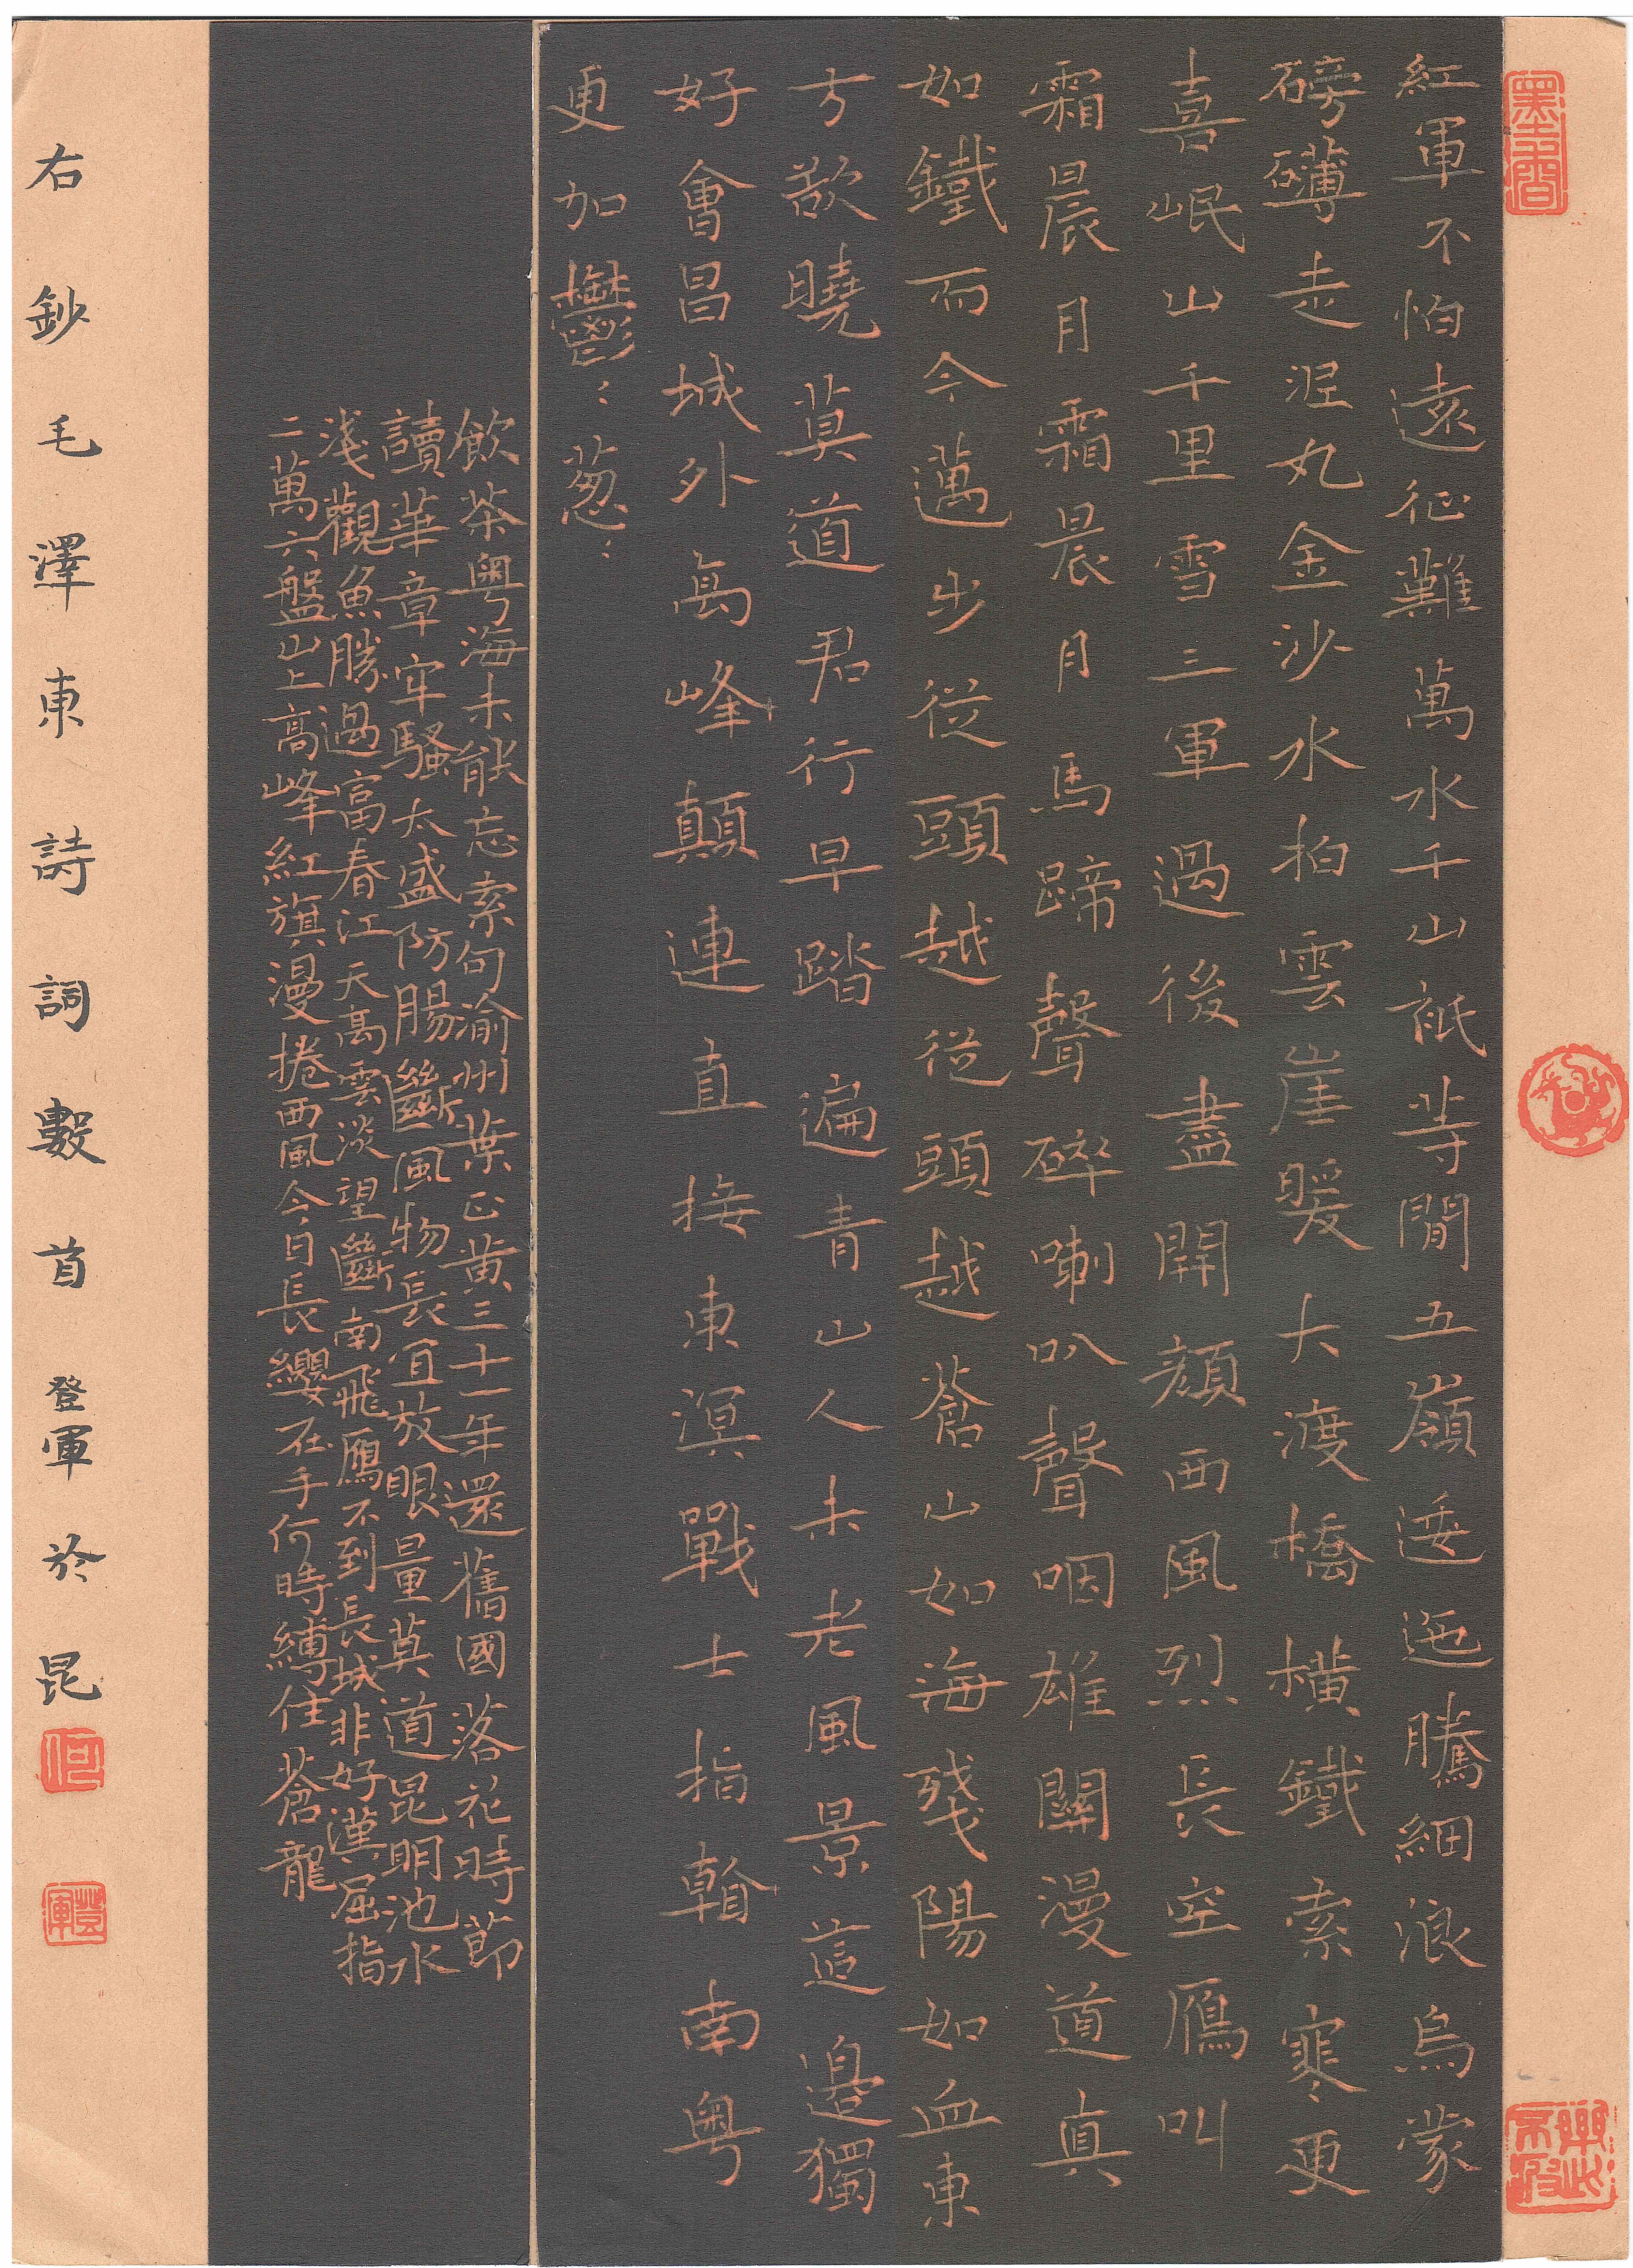 紅軍不怕遠征難萬水千山祇等閒五嶺逶迤騰細浪烏蒙
磅礴走泥丸金沙水拍雲崖暖大渡橋橫鐵索寒更
喜岷山千里雪三軍過後盡開顏西風烈長空鴈叫
霜晨月霜晨月馬蹄聲碎喇叭聲咽雄關漫道真
如鐵而今邁步從頭越從頭越蒼山如海殘陽如血東
方欲曉莫道君行早踏遍青山人未老風景這邊獨
好會昌城外高峰顛連直接東溟戰士指看南粵
更加鬱〻葱〻
飲茶粵海未能忘索句渝州葉正黃三十一年還舊國落花時節
讀華章牢騷太盛防腸斷風物長宜放眼量莫道昆明池水
淺觀魚勝過富春江天高雲淡望斷南飛鴈不到長城非好漢屈指
二萬六盤山上高峰紅旗漫捲西風今日長纓在手何時縛住蒼龍
右鈔毛澤東詩詞數首登軍於昆
何
登軍
樂此不疲